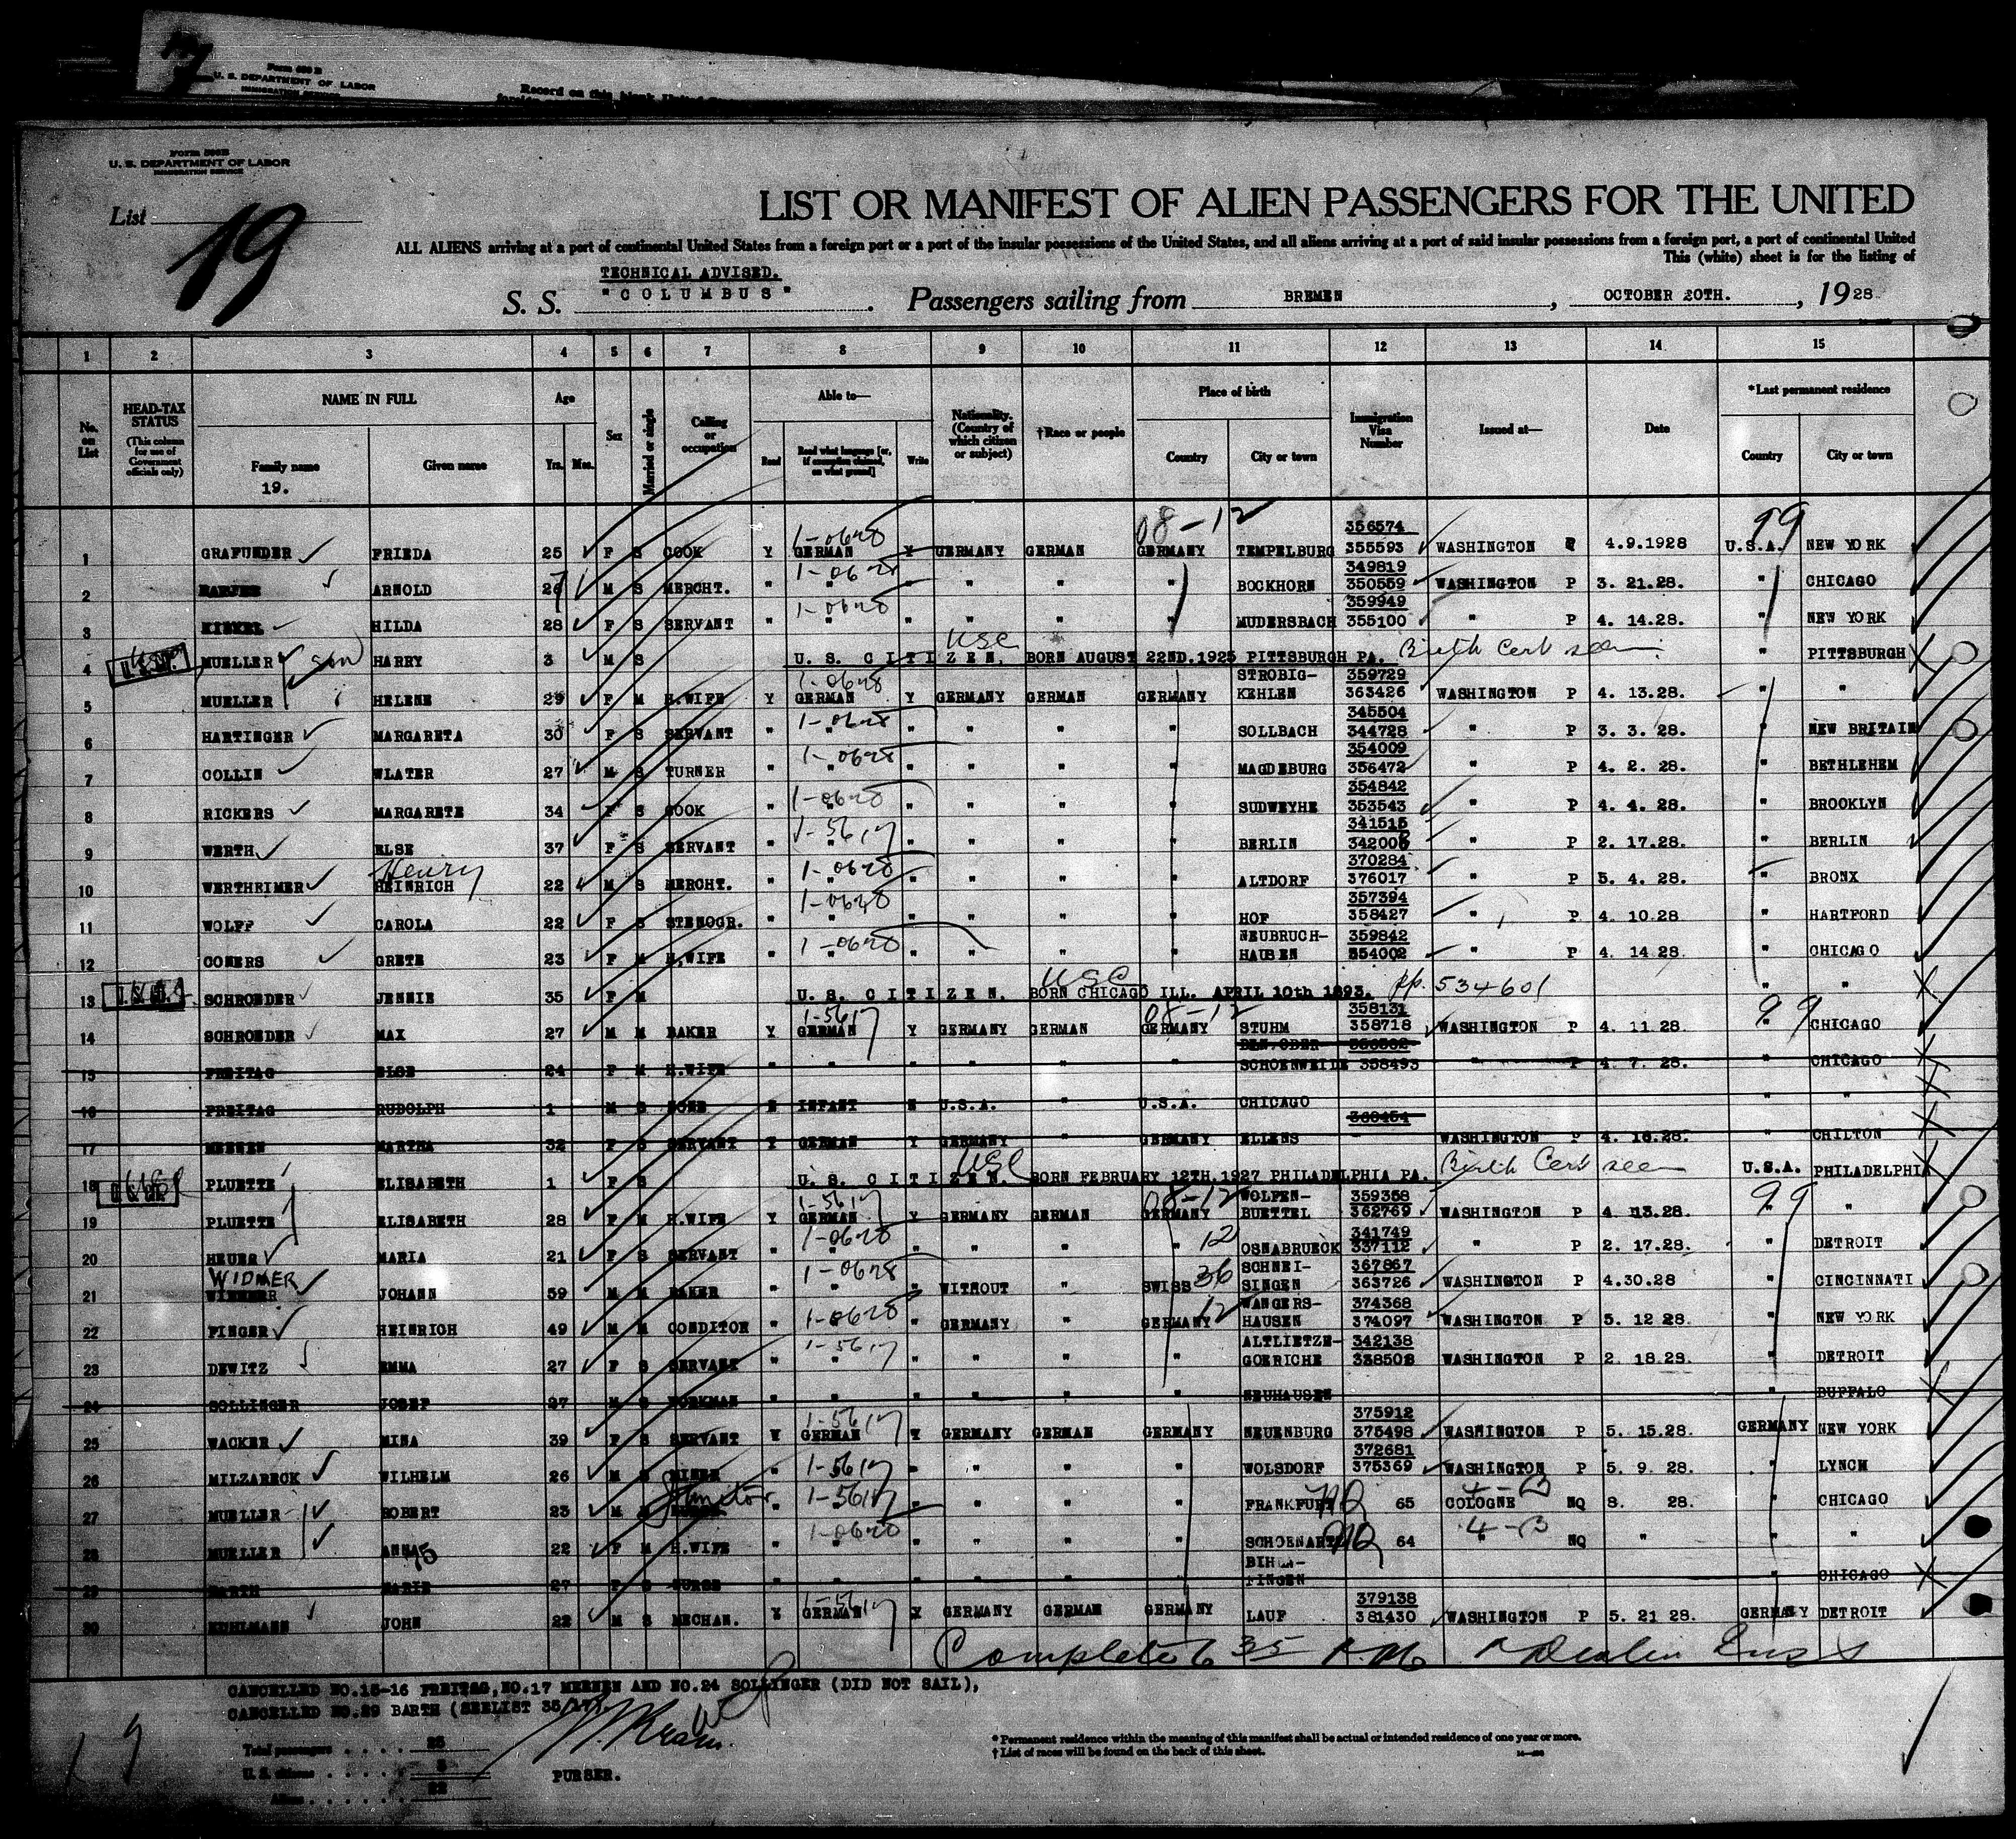 Form 500 B
U. S. DEPARTMENT OF LABOR
IMMIGRATION SERVICE
Record on this blank United
Form 500B
U. S. DEPARTMENT OF LABOR
IMMIGRATION SERVICE
List 19
LIST OR MANIFEST OF ALIEN PASSENGERS FOR THE UNITED
ALL ALIENS arriving at a port of continental United States from a foreign port or a port of the insular possessions of the United States, and all aliens arriving at a port of said insular possessions from a foreign port, a port of continental United
This (white) sheet is for the listing of
TECHNICAL ADVISED.
S. S. "COLUMBUS". Passengers sailing from BREMEN, OCTOBER 20TH., 1928
1 2 3 4 5 6 7 8 9 10 11 12 13 14 15
No. on List
HEAD-TAX STATUS (This column for use of Government officials only)
NAME IN FULL Family name Given name
19.
Age Yrs. Mos.
Sex
Married or single
Calling or occupation
Able to— Read Read what language [or, if exemption claimed, on what ground] Write
Nationality. (Country of which citizen or subject)
†Race or people
Place of birth Country City or town
Immigration Visa Number
Issued at—
Date
*Last permanent residence Country City or town
1-0628 08-12 356574 99
1 GRAFUNDER FRIEDA 25 F S COOK Y GERMAN Y GERMANY GERMAN GERMANY TEMPELBURG 355593 WASHINGTON P 4.9.1928 U.S.A. NEW YORK
1-0628 349819
2 ARNOLD 26 M S MERCHT. " " " " " " BOCKHORN 350559 WASHINGTON P 3. 21.28. " CHICAGO
1-0628 359949
3 HILDA 28 F S SERVANT " " " " " " MUDERSBACH 355100 " P 4. 14.28. " NEW YORK
USC
4 MUELLER son HARRY 3 M S U. S. CITIZEN. BORN AUGUST 22ND.1925 PITTSBURGH PA. Birth Cert seen PITTSBURGH
1-0628 STROBIG- 359729
5 MUELLER HELENE 29 F M H.WIFE Y GERMAN Y GERMANY GERMAN GERMANY KEHLEN 363426 WASHINGTON P 4. 13.28. " "
1-0628 345504
6 HARTINGER MARGARETA 30 F S SERVANT " " " " " " SOLLBACH 344728 " P 3. 3. 28. " NEW BRITAIN
1-0628 354009
7 COLLIN WLATER 27 M S TURNER " " " " " " MAGDEBURG 356472 " P 4. 2. 28. " BETHLEHEM
1-0628 354842
8 RICKERS MARGARETE 34 F S COOK " " " " " " SUDWEYHE 353543 " P 4. 4. 28. " BROOKLYN
1-5617 341515
9 WERTH ELSE 37 F S SERVANT " " " " " " BERLIN 342008 " P 2. 17.28. " BERLIN
Henry 1-0628 370284
10 WERTHEIMER HEINRICH 22 M S MERCHT. " " " " " " ALTDORF 376017 " P 5. 4. 28. " BRONX
1-0628 357394
11 WOLFF CAROLA 22 F S STENOGR. " " " " " " HOF 358427 " P 4. 10.28 " HARTFORD
1-0628 NEUBRUCH- 359842
12 CONERS GRETE 23 F M H.WIFE " " " " " " HAUSEN 354002 " P 4. 14.28. " CHICAGO
USC
13 SCHROEDER JENNIE 35 F M U. S. CITIZEN. BORN CHICAGO ILL. APRIL 10th 1893. pp. 534601 " "
1-5617 08-12 358131 99
14 SCHROEDER MAX 27 M M BAKER Y GERMAN Y GERMANY GERMAN GERMANY STUHM 358718 WASHINGTON P 4. 11 28. " CHICAGO
15 FREITAG ELSE 24 F M H.WIFE " " " " " " SCHOENWEIDE 358493 " P 4. 7. 28. " CHICAGO
16 FREITAG RUDOLPH 1 M S NONE N INFANT N U.S.A. " U.S.A. CHICAGO " "
360454
17 MEENEN MARTHA 32 F S SERVANT Y GERMAN Y GERMANY " GERMANY ELLENS WASHINGTON P 4. 16.28. " CHILTON
USC
18 PLUETTE ELISABETH 1 F S U. S. CITIZEN. BORN FEBRUARY 12TH.1927 PHILADELPHIA PA. Birth Cert seen U.S.A. PHILADELPHIA
1-5617 08-12 WOLFEN- 359358 99
19 PLUETTE ELISABETH 28 F M H.WIFE Y GERMAN Y GERMANY GERMAN GERMANY BUETTEL 362769 WASHINGTON P 4 13.28. " "
1-0628 12 341749
20 HEUER MARIA 21 F S SERVANT " " " " " " OSNABRUECK 337112 " P 2. 17.28. " DETROIT
WIDMER 1-0628 36 SCHNEI- 367867
21 JOHANN 59 M M BAKER " " " WITHOUT " SWISS SINGEN 363726 WASHINGTON P 4.30.28 " CINCINNATI
1-0628 12 WANGERS- 374368
22 FINGER HEINRICH 49 M M CONDITOR " " " GERMANY " GERMANY HAUSEN 374097 WASHINGTON P 5. 12 28. " NEW YORK
1-5617 ALTLIETZE- 342138
23 DEWITZ EMMA 27 F S SERVANT " " " " " " GOERICHE 338508 WASHINGTON P 2. 18.28. " DETROIT
24 SOLLINGER JOSEF 27 M S WORKMAN " " " " " " NEUHAUSEN " BUFFALO
1-5617 375912
25 WACKER MINA 39 F S SERVANT Y GERMAN Y GERMANY GERMAN GERMANY NEUENBURG 375498 WASHINGTON P 5. 15.28. GERMANY NEW YORK
1-5617 372681
26 MILZARECK WILHELM 26 M S MINER " " " " " " WOLSDORF 375369 WASHINGTON P 5. 9. 28. " LYNCH
Janitor 1-5617 NQ 4-B
27 MUELLER ROBERT 23 M " " " " " " FRANKFURT 65 COLOGNE NQ 8. 28. " CHICAGO
1-0628 NQ 4-B
28 MUELLER ANNA 22 F M H.WIFE " " " " " " SCHOENART 64 " NQ " " "
29 BARTH MARIE 27 F S NURSE " " " " " " FINGEN " CHICAGO
1-5617 379138
30 KUHLMANN JOHN 22 M S MECHAN. Y GERMAN Y GERMANY GERMAN GERMANY LAUF 381430 WASHINGTON P 5. 21 28. GERMANY DETROIT
Complete 6 35
CANCELLED NO.15-16 FREITAG,NO.17 MEENEN AND NO.24 SOLLINGER (DID NOT SAIL),
CANCELLED NO.29 BARTH (SEELIST 35/17).
Total passengers . . . . 25
U. S. citizens . . . . 3
Aliens . . . . . . 22
PURSER.
19
* Permanent residence within the meaning of this manifest shall be actual or intended residence of one year or more.
† List of races will be found on the back of this sheet.